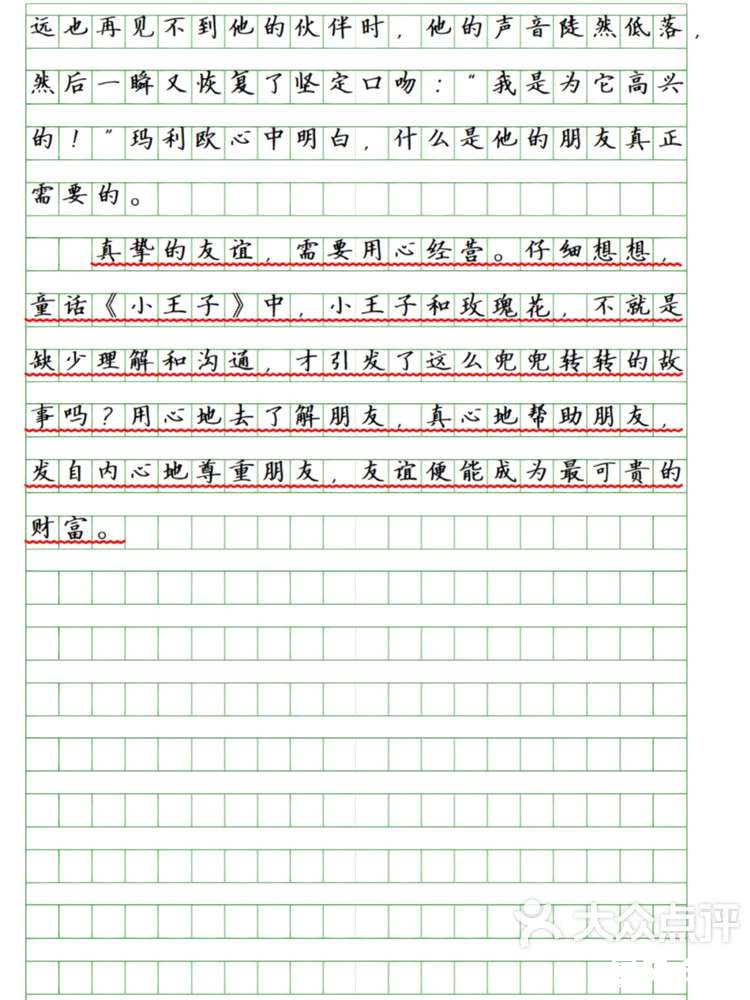 远也再见不到他的伙伴时，他的声音陡然低落，
然后一瞬又恢复了坚定口吻：“我是为它高兴
的！”玛利欧心中明白，什么是他的朋友真正
需要的。
真挚的友谊，需要用心经营。仔细想想，
童话《小王子》中，小王子和玫瑰花，不就是
缺少理解和沟通，才引发了这么兜兜转转的故
事吗？用心地去了解朋友，真心地帮助朋友，
发自内心地尊重朋友，友谊便能成为最可贵的
财富。
大众点评